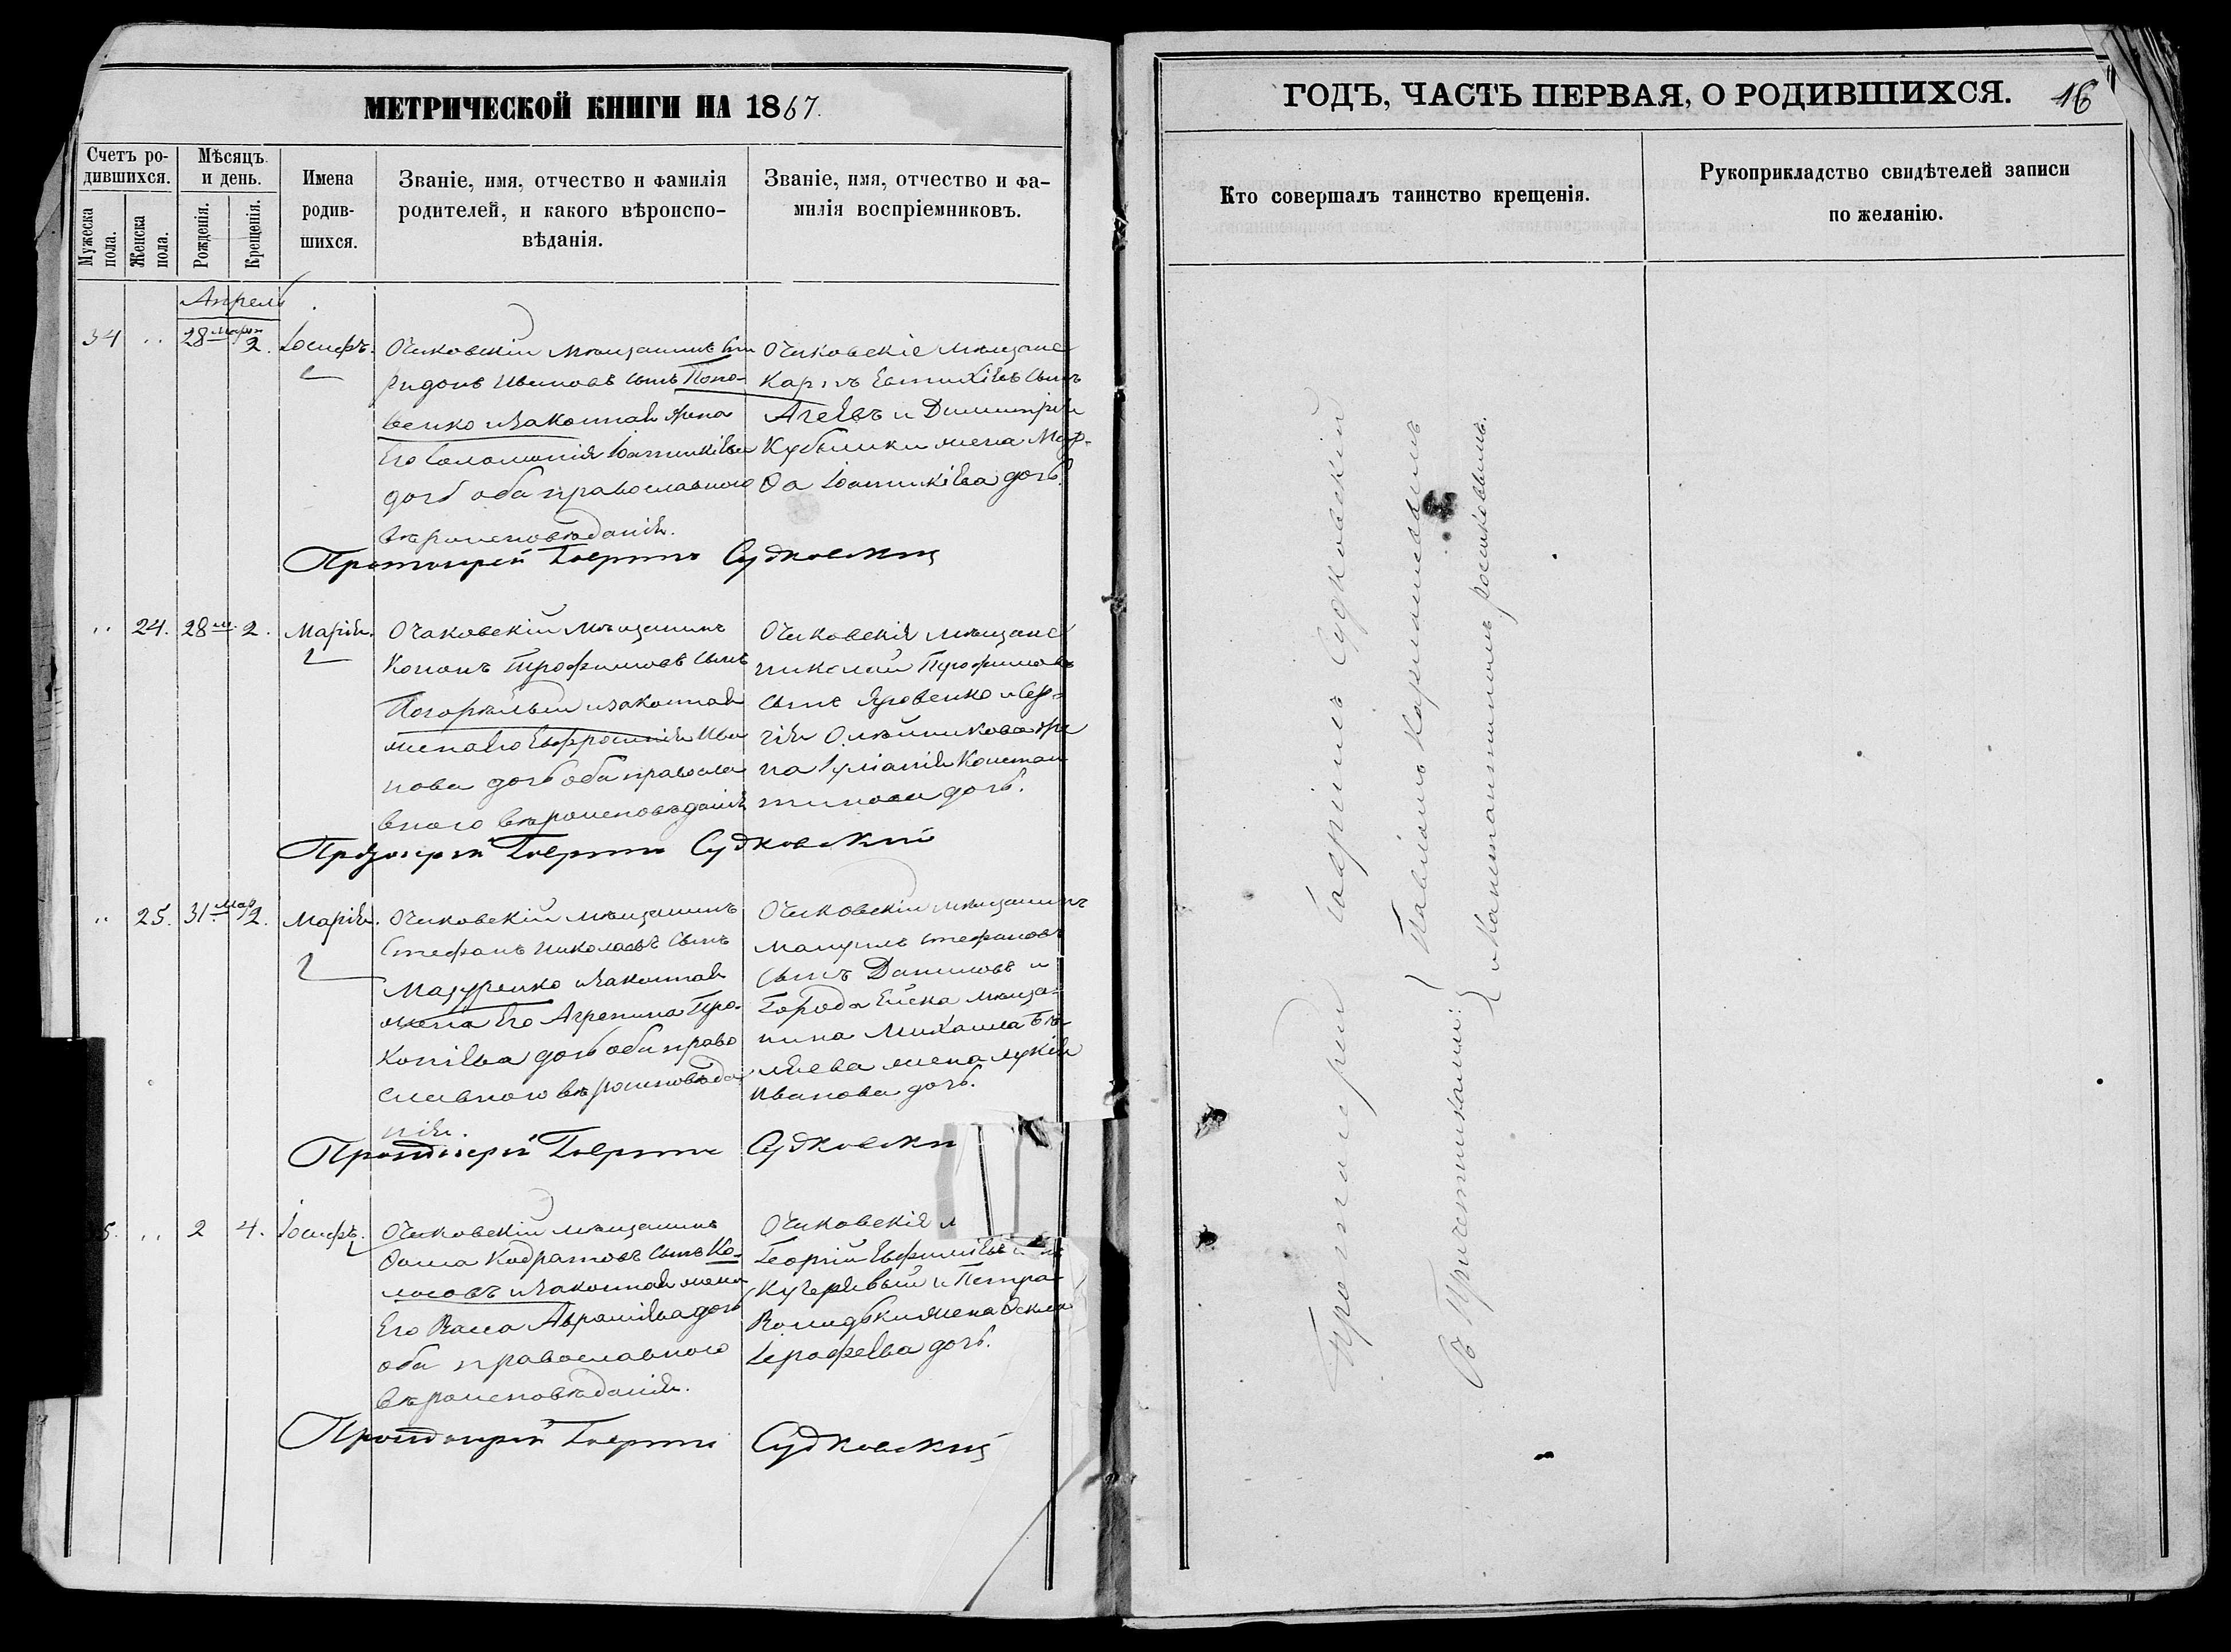 МЕТРИЧЕСКОЙ КНИГИ НА 1867.
Счетъ ро-
дившихся.
Мѣсяцъ
и день.
Мужеска
пола.
Женска
пола.
Рожденія.
Крещенія.
Имена
родив-
шихся.
Званіе, имя, отчество и фамилія
родителей, и какого вѣроиспо-
вѣданія.
Званіе, имя, отчество и фа-
милія воспріемниковъ.
Апрель
34 .. 28 март 2. Іосифъ.
Очаковскій мѣщанинъ Спи
ридонъ Ивановъ сынъ Попо-
венко и законная жена
Его Соломонія Іоанникіева
дочь оба православного
вѣроисповѣданія.
Очаковскіе мѣщане
Карпъ Евтихіевъ сынъ
Агеевъ и Димитрія
жена Мар-
ѳа Іоанникіева дочь.
Протоіерей Гавріилъ Судковскій
.. 24. 28 м. 2. Марія.
Очаковскій мѣщанинъ
Кононъ Трофимовъ сынъ
Погорѣлый и законная
жена Его Евфросинія Ива
нова дочь оба правосла
вного вѣроисповѣданія
Очаковскія мѣщане
Николай Трофимовъ
сынъ Яровенко и Сер-
гія Олейникова же
на Іуліанія Констан
тинова дочь.
Протоіерей Гавріилъ Судковскій
.. 25. 31 мар 2. Марія.
Очаковскій мѣщанинъ
Стефанъ Николаевъ сынъ
Мазуренко и законная
жена Его Агрепина Про-
копіева дочь оба право
славного вѣроисповѣда
нія.
Очаковскій мѣщанинъ
Мануилъ Стефановъ
сынъ Даниловъ и
Города Ейска мѣща-
нина Михаила Бѣ-
ляева жена Лукія
Иванова дочь.
Протоіерей Гавріилъ Судковскі
5. .. 2 4. Іосифъ.
Очаковскій мѣщанинъ
Ѳома Кодратовъ сынъ Ко-
лосовъ и законная жена
Его Васса Авраміева дочь
оба православного
вѣроисповѣданія.
Очаковскія м
Георгій Евфиміевъ
Кучерявый и Петра
жена Ѳекла
Іерофеева дочь.
Протоіерей Гавріилъ Судковскій
ГОДЪ, ЧАСТЬ ПЕРВАЯ, О РОДИВШИХСЯ. 16
Кто совершалъ таинство крещенія.
Рукоприкладство свидѣтелей записи
по желанію.
Протоіерей Гавріилъ Судковскій
Съ Причетниками:
Павломъ
и Константиномъ